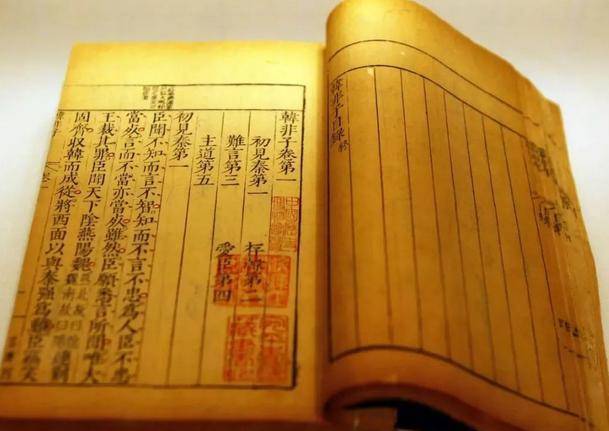 韓非子目錄 終
韓非子卷第一
初見秦第一 存韓第二
難言第三 愛臣第四
主道第五
初見秦第一
臣聞不知而言不智知而不言不忠為人臣不忠
當死言而不當亦當死雖然臣願悉言所聞唯大
王裁其罪臣聞天下陰燕陽魏 燕北故曰陰魏南故曰陽 連荊
固齊收韓而成從將西面以與秦強為難臣竊笑